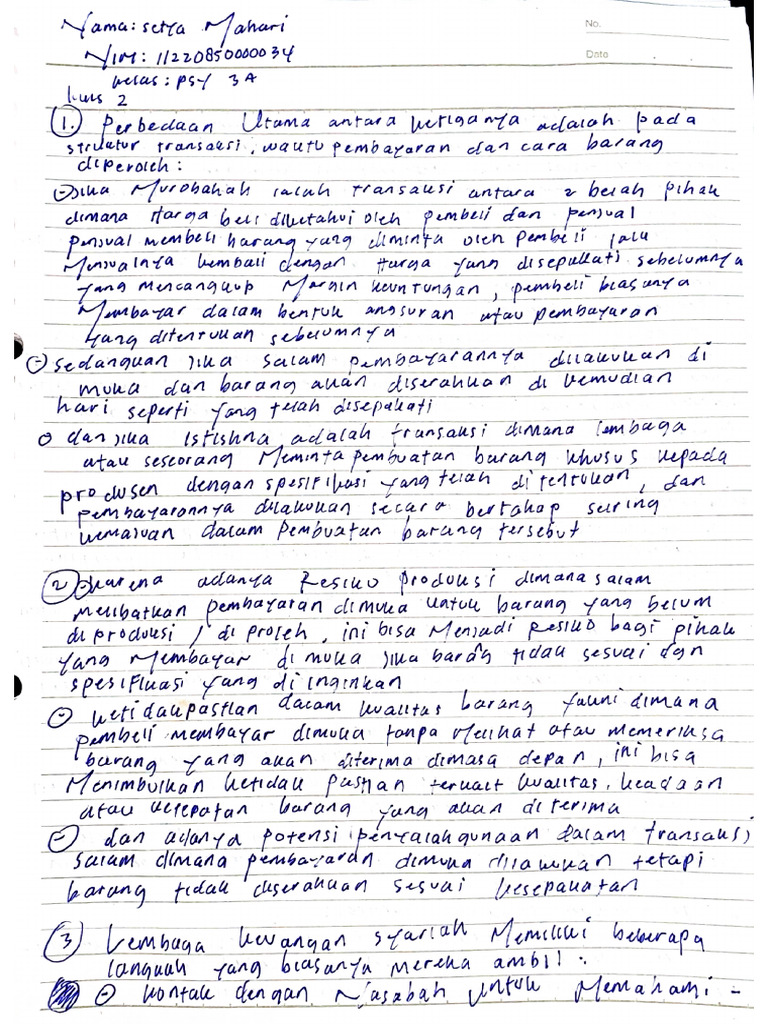 Nama: setya Mahari
No.
NIM: 11220850000034
Date
kelas: PSY 3A
kuis 2
1. Perbedaan Utama antara ketiganya adalah pada
struktur transaksi, waktu pembayaran dan cara barang
diperoleh:
- Jika Murobahah ialah transaksi antara 2 belah pihak
dimana Harga beli diketahui oleh pembeli dan penjual
penjual membeli barang yang diminta oleh pembeli lalu
Menjualnya kembali dengan Harga yang disepakati sebelumnya
yang mencangkup Margin keuntungan, pembeli biasanya
Membayar dalam bentuk angsuran atau pembayaran
yang ditentukan sebelumnya
- sedangkan Jika salam pembayarannya dilakukan di
muka dan barang akan diserahkan di kemudian
hari seperti yang telah disepakati
o dan Jika Istishna adalah transaksi dimana lembaga
atau seseorang Meminta pembuatan barang khusus kepada
produsen dengan spesifikasi yang telah ditentukan, dan
pembayarannya dilakukan secara bertahap seiring
kemajuan dalam Pembuatan barang tersebut
2 - karena adanya Resiko produksi dimana salam
melibatkan pembayaran dimuka untuk barang yang belum
diproduksi / diproleh, ini bisa Menjadi Resiko bagi pihak
yang Membayar dimuka Jika barang tidak sesuai dgn
spesifikasi yang diinginkan
- ketidakpastian dalam kualitas barang yakni dimana
pembeli membayar dimuka tanpa Melihat atau memeriksa
barang yang akan diterima dimasa depan, ini bisa
Menimbulkan ketidak pastian terkait kualitas, keadaan
atau kesepatan barang yang akan diterima
- dan adanya potensi penyalahgunaan dalam transaksi
salam dimana pembayaran dimuka dilakukan tetapi
barang tidak diserahkan sesuai kesepakatan
3 Lembaga keuangan syariah Memiliki beberapa
langkah yang biasanya mereka ambil:
- kontak dengan Nasabah Untuk Memahami -